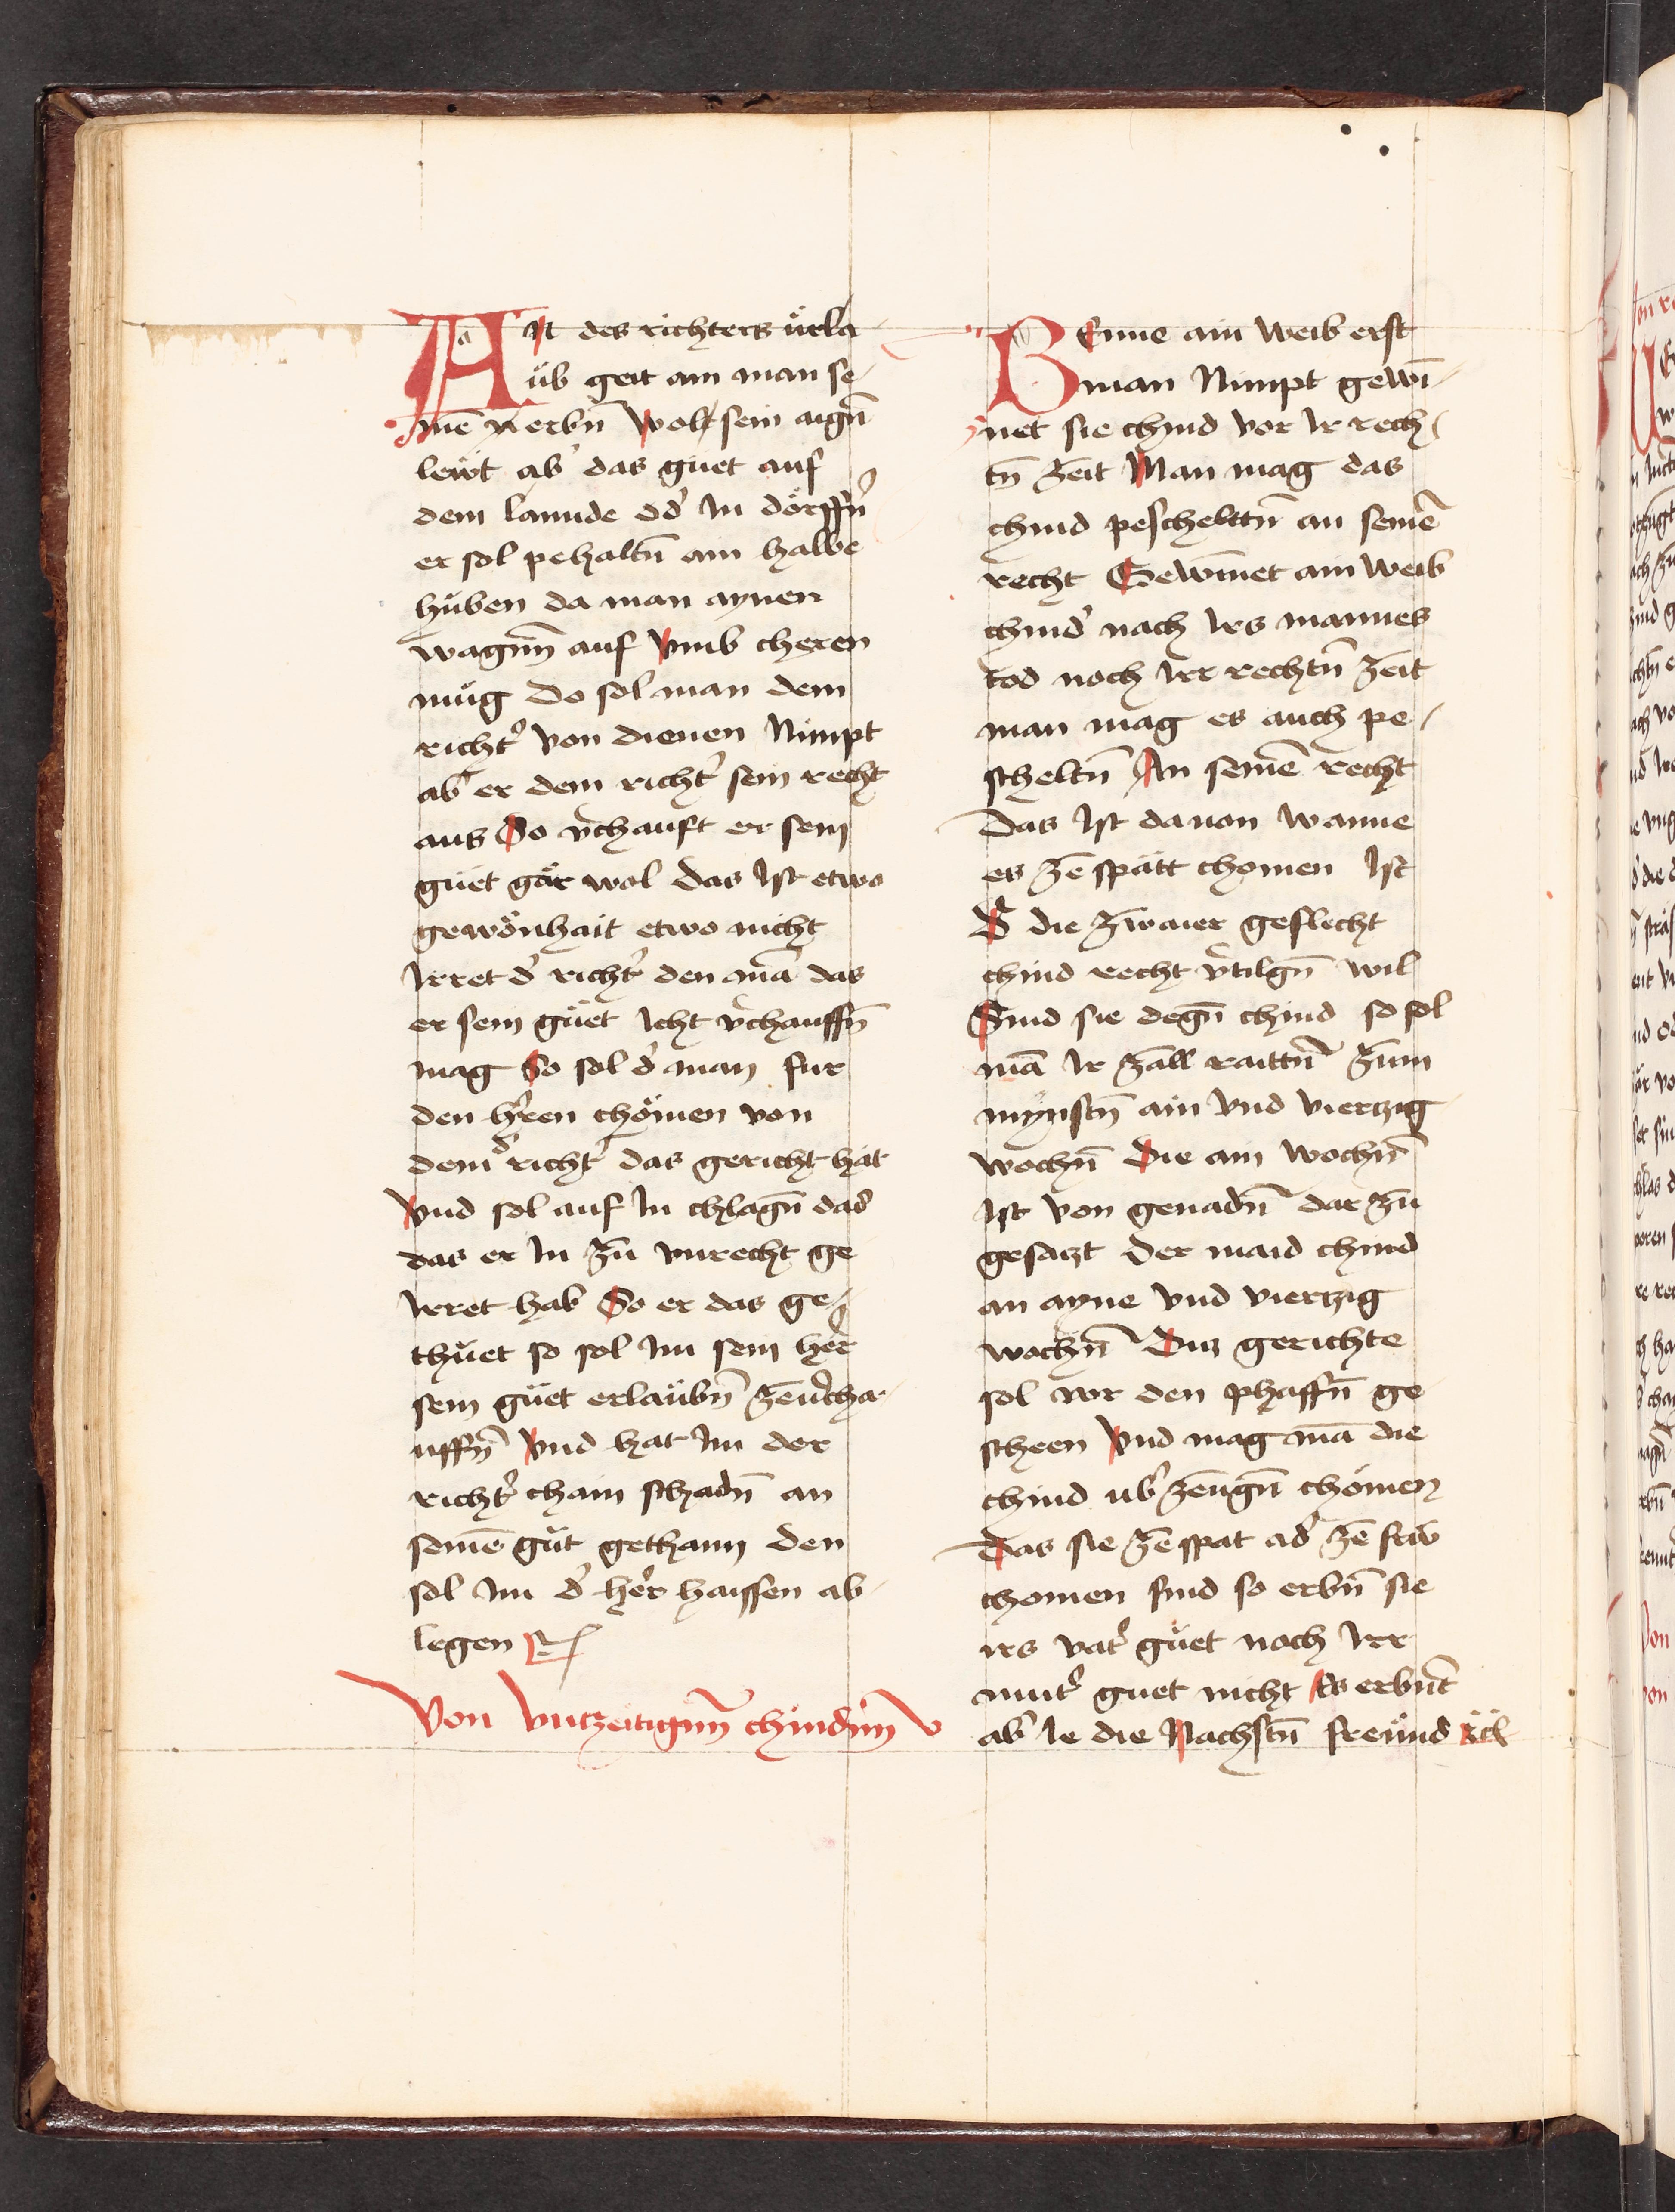 An des richters ürla
üb geit ain man se
inē erbn̄ wol sein aign̄
lewt ab' das guet auf
dem lannde od' In dörffn̄
er sol pehaltn̄ ain halbe
hüben da man aynen
wagnn̄ auf vmb cheren
müg Do sol man dem
richt' von dienen Nimpt
ab' er dem richt' sein recht
aus So v'chauft er sein
guet gar wol Das Ist etwo
gewönhait etwo nicht
Irret d' richt' den mā das
er sein güet Icht v'chauffn̄
mag So sol d' man fur
den h'ren chömen von
dem d' richt' das gericht hat
vnd sol auf In chlagn̄ das
das er In zu vnrecht ge
Irret hab So er das ge
thüet so sol Im sein her
sein güet erläubn̄ zeu'cha
uffn̄ vnd hat Im der
richt' chain schadn̄ an
seinē güt gethann den
sol Im d' her haissen ab
legen
Von vntzeitignn̄ chindnn̄
Wenne ain weib erst
man Nimpt gewī
net sie chind vor Ir rech
tn̄ zeit Man mag das
chind pescheltn̄ an seinē
recht Gewinnet ain weib
chind' nach Irs mannes
tod noch Irr rechtn̄ zeit
man mag es auch pe
scheltn̄ An seinē recht
Das Ist dauon wanne
es ze spätt chomen Ist
D' die zwaier geslecht
chind recht v'tilgn̄ wil
Sind sie degn̄ chind so sol
mā Ir zall raittn̄ zum
mynstn̄ ain vnd viertzig
wochn̄ Die ain wochn̄
Ist von genadn̄ dar zu
gesatzt Der maid chind
an ayne vnd viertzig
wochn̄ Ditz gerichte
sol vor den phaffn̄ ge
scheen vnd mag mā die
chind ub' zeugn̄ chömen
Das sie ze spat ad' ze fru
chomen sind so erbn̄ sie
irs vat' güet noch Irr
mut' guet nicht Es erbnt
ab' Ie die Nachstn̄ freünd